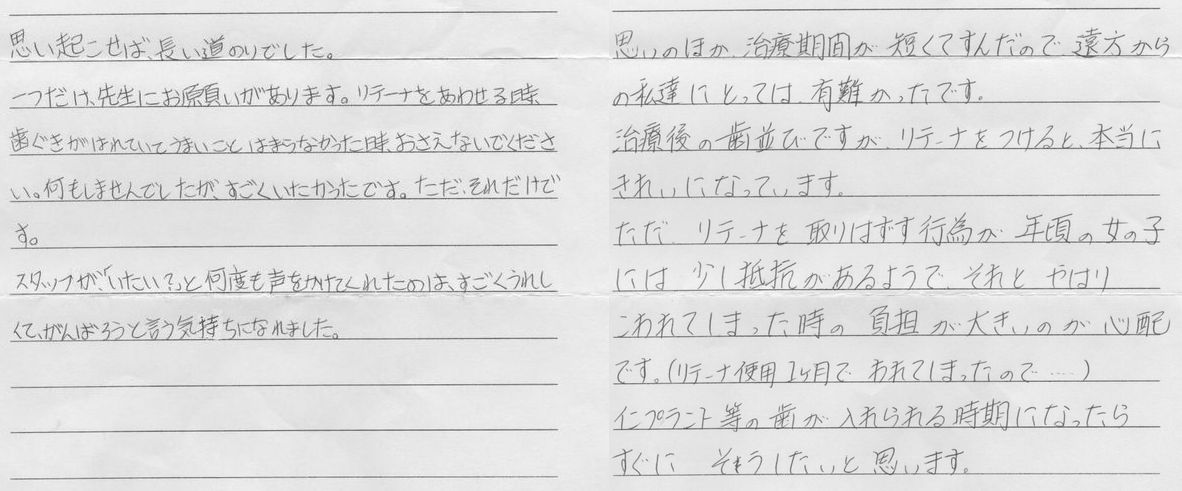 思い起こせば、長い道のりでした。
一つだけ、先生にお願いがあります。リテーナをあわせる時、
歯ぐきがはれていてうまいことはまらなかった時、おさえないでくださ
い。何もしませんでしたが、すごくいたかったです。ただ、それだけで
す。
スタッフが、「いたい?」と何度も声をかけてくれたのは、すごくうれし
くて、がんばろうと言う気持ちになれました。
思いのほか、治療期間が短くてすんだので、遠方から
の私達にとっては、有難かったです。
治療後の歯並びですが、リテーナをつけると、本当に
きれいになっています。
ただ、リテーナを取りはずす行為が年頃の女の子
には少し抵抗があるようで、それとやはり
こわれてしまった時の負担が大きいのが心配
です。(リテーナ使用1ヶ月でわれてしまったので……)
インプラント等の歯が入れられる時期になったら
すぐにそうしたいと思います。